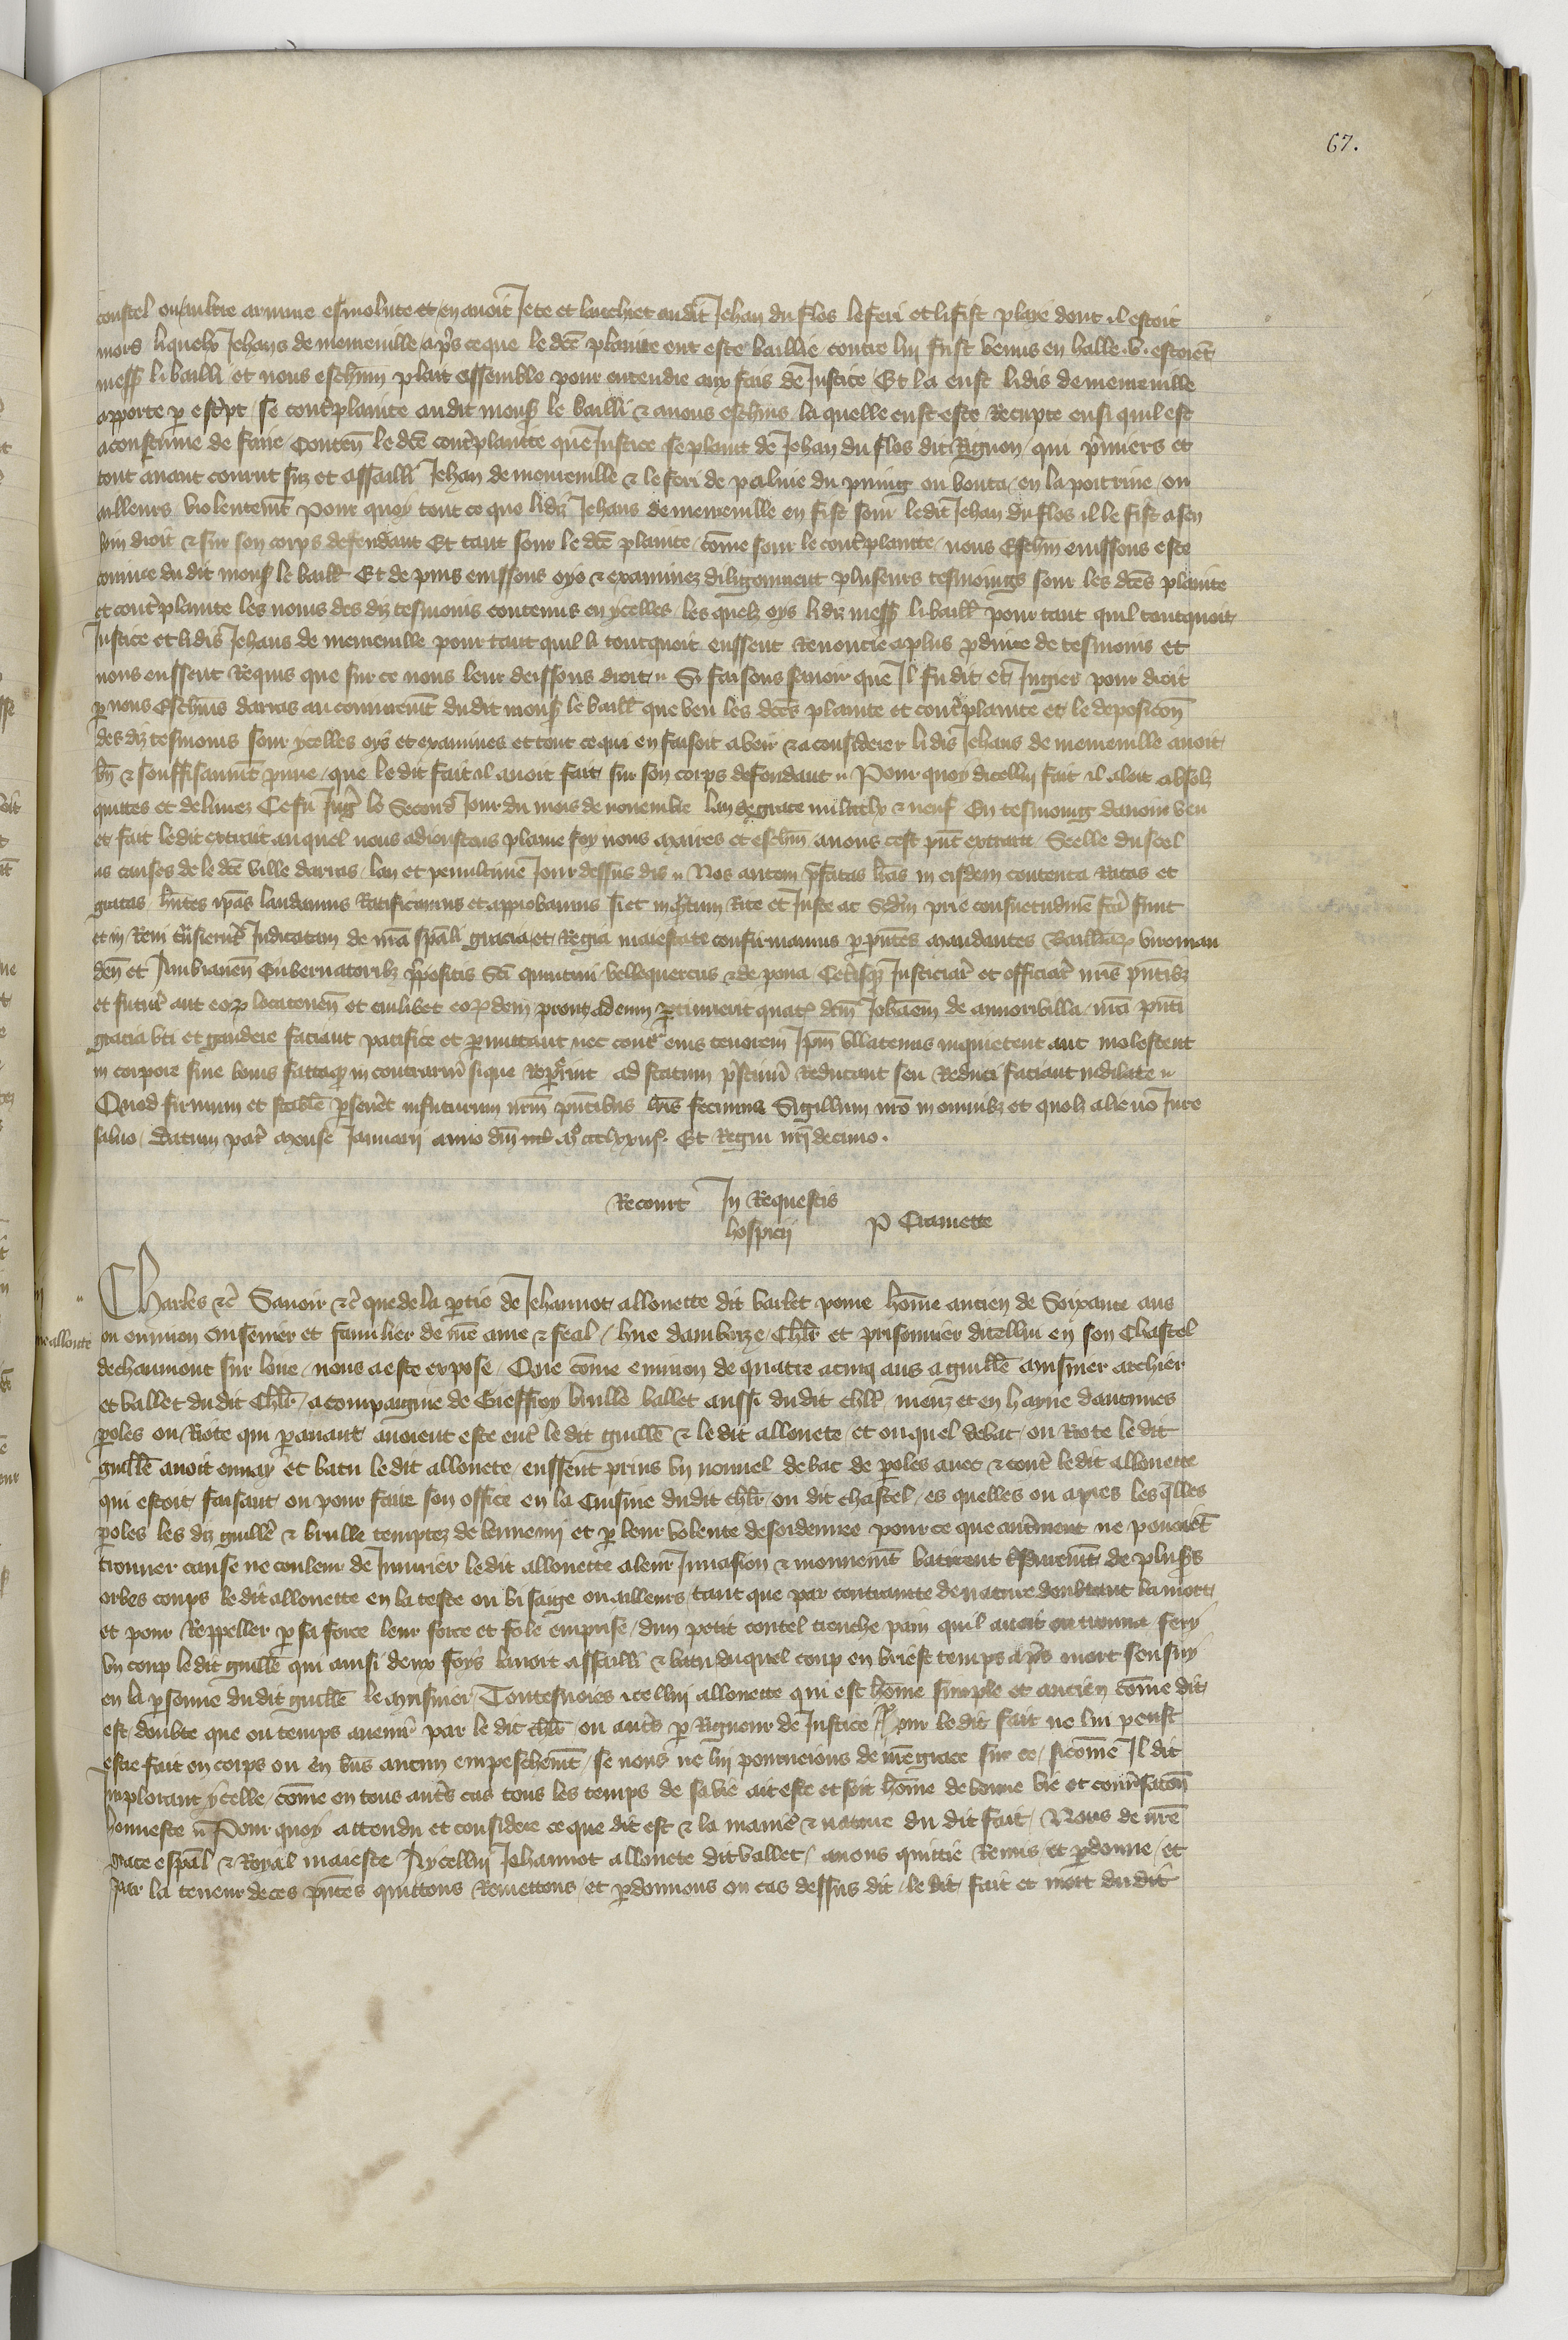 67.
coustel ou aultre armure esmolute et en avoit Jete et lanchiet audit Jehan du flos le feri et li fist plaie dont il estoit
mors liquelx Jehans de memeuille apres ce que le dce plainte eut este baillie contre lui fust venus en halle . v . estoient
mess li bailli et nous eschin plait assemble pour entendre aux fais de Justice / Et la eust lidis de memeuille
apporte p escpt / se contplainte audit mons le bailli & a nous eschins / la quelle eust este Recupte ensi quil est
acoustume de faire / Conten le dce contplainte que Justice se plaint de Jehan du flos dit Rignon / qui pmiers et
tout avant courut suz et assailli Jehan de memeuille & le feri de palme du puing ou bouta / en la poitrine / ou
ailleurs violentemt pour quoy tout ce que lidiz Jehans de memeuille en fist sour ledit Jehan du flos il le fist a sen
bon droit & sur son corps defendant Et tant sour le dce plainte / come sour le contplainte / nous Eschin euissons este
conjure du dit mons le baill Et de puis euissons oys & examinez diligemment pluseurs tesmoings sour les dces plainte
et contplainte les noms des diz tesmoins contenus en ycelles / les quelz oys li diz mess li baill pour tant quil toucquoit
Justice et li dis Jehans de memeuille pour tant quil li toucquoit eussent Renoncie a plus pduire de tesmoins et
nous eussent Requis que sur ce nous leur deissons droit .. Si faisons savoir que Il fu dit et Jugiet pour droit
p nous Eschins darras au conjuremt dudit mons le baill que veu les dces plainte et contplainte et le deposicon
des diz tesmoins sour ycelles oys et examines et tout ce qui en faisoit a veir & a considerer li dis Jehans de memeuille avoit
bn & souffisaumt pruve / que le dit fait il avoit fait sur son corps defendant .. Pour quoy dicellui fait il aloit absolz
quittes et delivrez Ce fu Jugie le Second Jour du mois de novembre lan de grace mil ccclx & neuf En tesmoing davoir veu
et fait le dit extrait auquel nous adjoustons plaine foy nous maires et eschin avons cest pnt extrait Seelle du seel
as causes de le dce ville darras / lan et penultime Jour dessus dis .. Nos autem pfatas lras in eisdem contenta Ratas et
gratas hntes ipas laudamus Ratificamus et approbamus si et inqntum Rite et Juste ac scdm prie consuetudine fca sunt
et in Rem tnsierunt Judicatam de nra spali gracia et Regia maiestate confirmamus p pntes mandantes Baillivis viroman
den et Ambianen Gubernatoribz ppositis Sci quintini bellequercus & de pona Ceterisqz Justiciar et officiar nris pntibz
et futur aut eorz locatenen et cuilibet eorzdem prout ad eum ptinuerit quatz dcm Johem de amorivilla / nra pnti
gracia uti et gaudere faciant pacifice et pmittant nec contr eius tenorem Ipm ullatenus inquietent aut molestent
in corpore sive bonis fattaqz in contrarium sique reppint ad statum pstinu reducant seu reduci faciant indilate ..
Quod firmum et stable pseveret infuturum nrm pntibus lris fecimus Sigillum nro in omnibz et quolz alieno Jure
salvo / Datum par mense Januarij anno dni mo ccclxxiijo. Et Regni nri decimo .
Recourt In Requestis
hospicij P Cramette
Charles &c Savoir &c que de la ptie de Jehannot allouette dit vaslet povre home ancien de Soixante ans
ne allouete
ou environ cuisenier et familier de nre ame & feal / hue damboize / chlr et prisonnier dicellui en son Chastel
de chaumont sur loire / nous a este expose / Que come environ de quatre a cinq ans a guille cuisinier archier
et vallet du dit chlr / acompaigne de Gieffroy brulle vallet aussi du dit chlr / meuz et en hayne daucunes
poles ou Riote qui pavant avoient este ent le dit guille & le dit allouete / et ou quel debat / ou Riote le dit
guille avoit envay et batu le dit allouete / eussent prins un nouvel debat de poles avec & cont le dit allouette
qui estoit faisant / ou pour faire son office en la Cuisine dudit chlr / ou dit chastel / es quelles ou apres les qlles
poles les diz guille & brulle temptez de lennemi et p leur volente desordenee pour ce que autrement ne povoiet
trouver cause ne couleur de Injurier le dit allouette a leur Invasion & mouvemt batirent durement de plusrs
orbes coups le dit allouette en la teste ou visaige ou ailleurs / tant que par contrainte de nature doubtant la mort
et pour Reppeller p sa force leur force et fole emprise / dun petit coutel trenche pain quil avoit ou trouva fery
un coup le dit guille qui ainsi deux foys lavoit assailli & batu duquel coup en brief temps aps mort sensuy
en la psonne du dit guille le cuisinier / Toutesvoies icellui allouette qui est home simple et ancien come dit
est / doubte que ou temps avenir par le dit chlr / ou auts p Rigueur de Justice Pour le dit fait ne lui peust
estre fait en corps ou en bns aucun empeschemt / se nous ne lui pourveions de nre grace sur ce / si come Il dit
Implorant ycelle / come en tous auts cas tous les temps de sa vie ait este et soit home de bonne vie et convsaton
honneste .. Pour quoy attendu et considere ce que dit est & la manie & nature du dit fait / Nous de nre
grace espal & Royal maieste A ycellui Jehannot allouete dit vallet / avons quittie Remis / et pdonne / et
par la teneur de ces pntes quittons Remettons / et pdonnons ou cas dessus dit / le dit fait et mort dudit